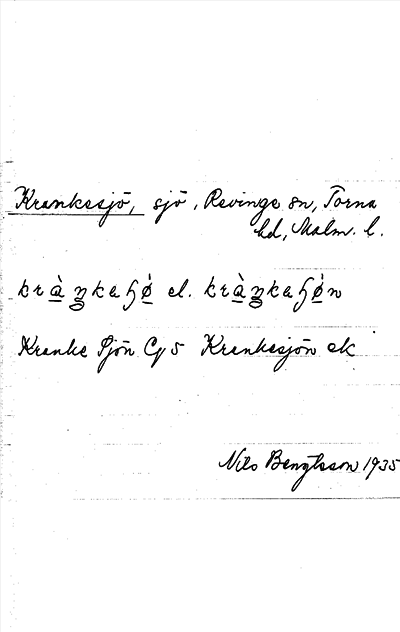 Krankesjö, sjö, Revinge sn, Torna
hd, Malm. l.
kràŋkaɧø̀ el. kràŋkaɧø̀n
Kranke Sjön Cy 5 Krankesjön ek
Nils Bengtsson 1935